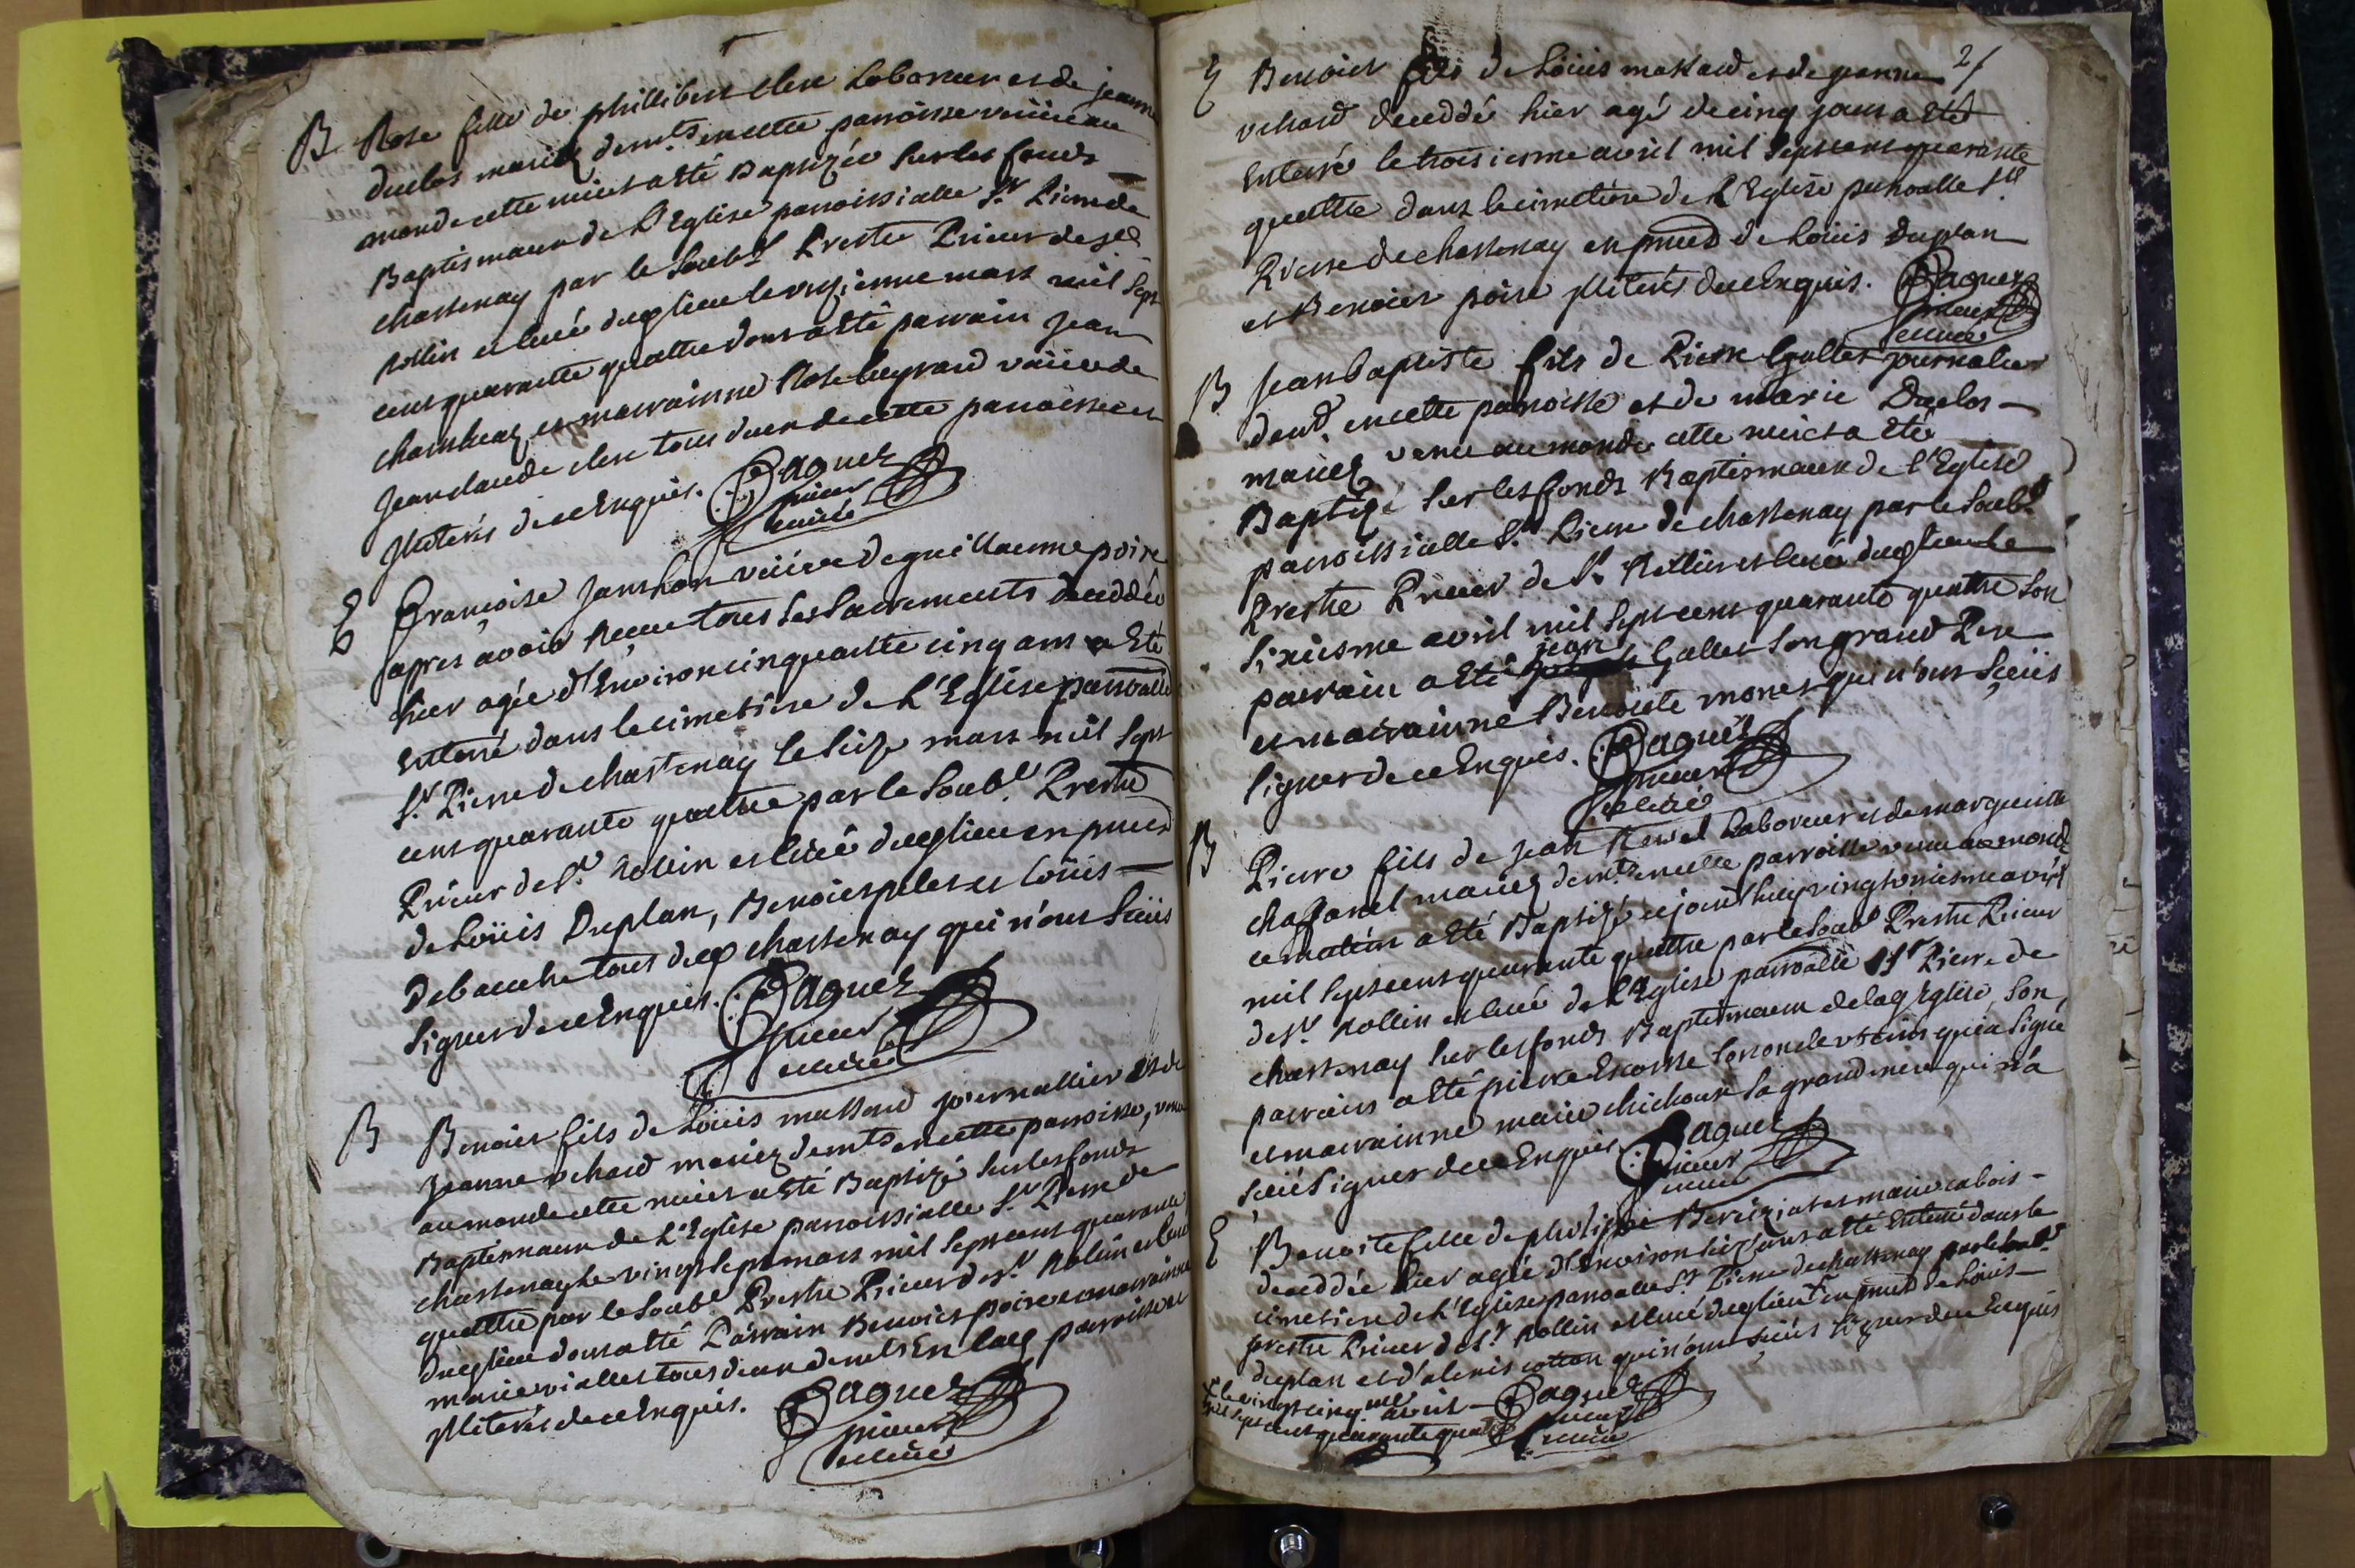 B Rose fille de phillibert clere Laboreur et de jeanne
duclos mariez demts en cette parroisse veniie au
monde cette nuict a Eté Baptizée sur les fonds
Baptismaux de L'Eglise parroissialle St. Pierre de
chastenay par le soubt Prestre Prieur de St
rollin et curé dud lieu le mars mil sept
cent quarante quattre dont a Eté parrain Jean
et marrainne Rose veüive de
jean claude clere tous deux de cette parroisse et
jlliterés de ce Enquis. Paguez
prieur
et curé
E Françoise veüive de guillaume poire
apres avoir Reçeue tous ses sacrements deceddée
hier agée d'Environ cinquante cinq ans a Eté
Enterré dans le cimetiere de L'Eglise parroalle
St. Pierre de chastenay le seize mars mil sept
cent quarante quattre par le soubt. Prestre
Prieur de St. Rollin et curé dud lieu en pnce
de Loüis Duplan, Benoict et Loüis
Debauche tous dud chastenay qui n'ont sceüs
signer de ce Enquis. Paguez
prieur
et curé
B Benoict fils de Loüis massard journallier et de
Jeanne vchard mariez demts en cette parroisse, venu
au monde cette nuict a Eté Baptizé sur les fonds
Baptismaux de L'Eglise parroissialle St. Pierre de
chastenay le vingt sept mars mil sept cent quarante
quattre par le soubt Prestre Prieur de St. Rolin et curé
dud lieu dont a Eté Parrain Benoict poire et marrainne
marie viallet tous deux demts En lad parroisse et
jlliterés de ce Enquis. Paguez
prieur
et curé
2/
E Benoict fils de Loüis massard et de jeanne
vchard deceddé hier agé de cinq jours a Eté
Enterré le troisiesme avril mil sept cent quarante
quattre dans le cimetiere de L'Eglise parroalle St
Pierre de chastenay en pnce de Loüis duplan
et Benoict poire jlliterés de ce Enquis. Paguez
prieur
et curé
B Jean baptiste fils de Pierre Gallet journalier
demt. en cette parroisse et de marie Duclos
mariez venu au monde cette nuict a Eté
Baptizé sur les fonds Baptismaux de l'Eglise
parroissialle St. Pierre de chastenay par le soubt
Prestre Prieur de St. Rollin et curé dud lieu le
sixiesme avril mil sept cent quarante quattre son
parrain a Eté jean Gallet son grand Pere
et marrainne Benoite monet qui n'ont sceüs
signer de ce Enquis. Paguez
prieur
et curé
B Pierre fils de Jean Revel Laboreur et de marguerite
chaffanel mariez demts en cette parroisse venu au monde
ce matin a Eté Baptizé ce jourd'huy vingtroisiesme avril
mil sept cent quarante quattre par le soubt Prestre Prieur
de St. Rollin et curé de L'Eglise parroalle St Pierre de
chastenay sur les fonds Baptismaux de lad Eglise, son
parrain a Eté pierre Escosse son oncle qui a signé
et marrainne marie sa grand mere qui n'a
sceu signer de ce Enquis Paguez
prieur
et curé
E Benoite fille de philippe et marie
deceddée hier agée d'Environ ans a Eté Enterré dans le
cimetiere de L'Eglise parroalle St. Pierre de chastenay par le soubt
prestre Prieur de St. Rollin et curé dud lieu + en pnce de Loüis
duplan et d'alexis cotton qui n'ont sceüs signer de ce Enquis
+ le vingt cinqme avril Paguez
mil sept cent quarante quattre prieur
et curé